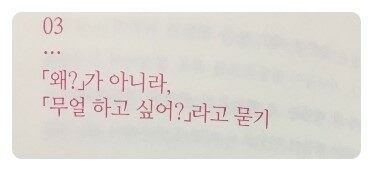 03
...
「왜?」가 아니라,
「무얼 하고 싶어?」라고 묻기